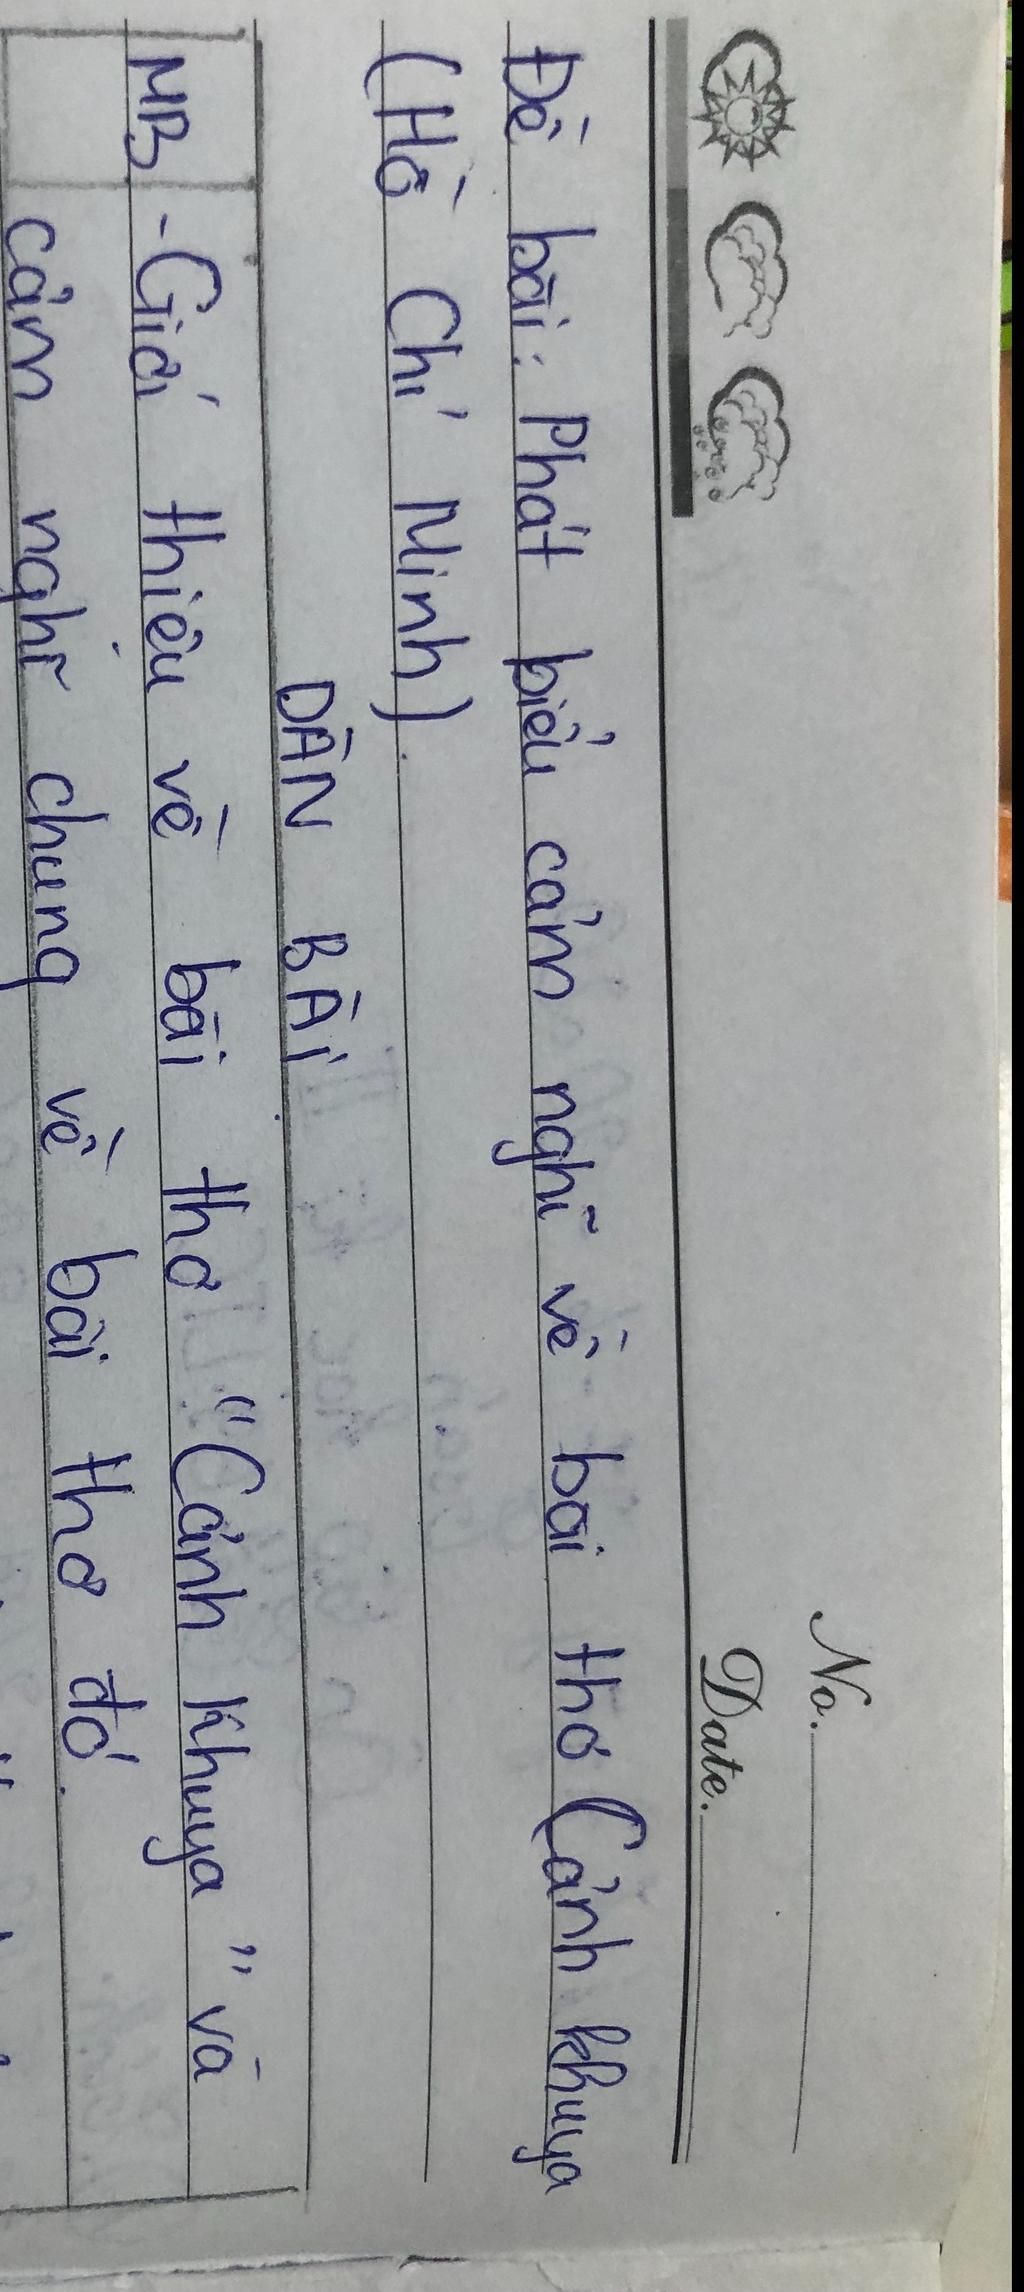 No.
Date.
Đề bài: Phát biểu cảm nghĩ về bài thơ Cảnh khuya
(Hồ Chí Minh).
DÀN BÀI
MB - Giới thiệu về bài thơ "Cảnh khuya" và
cảm nghĩ chung về bài thơ đó.